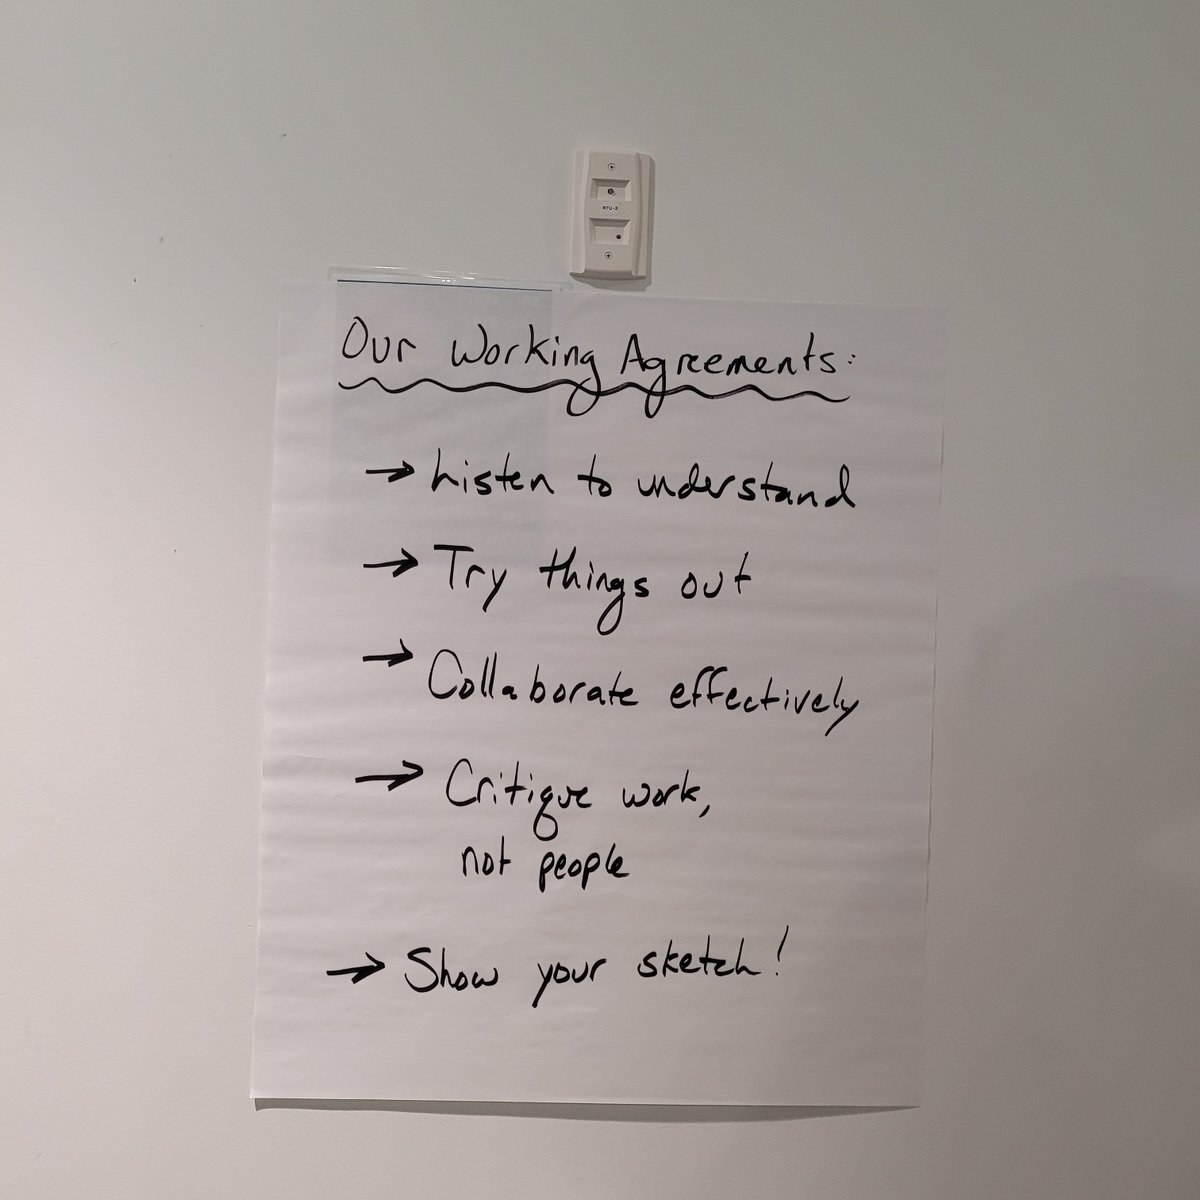 RTU-5
Our Working Agreements:
→ Listen to understand
→ Try things out
→ Collaborate effectively
→ Critique work,
not people
→ Show your sketch!